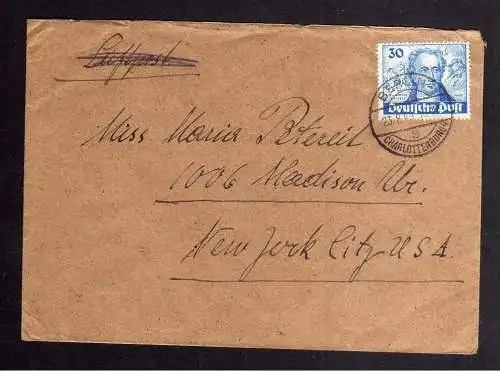 Luftpost
30
Deutsche Post
BERLIN
CHARLOTTENBURG
Miss Maria
1006 Madison
New York City, USA